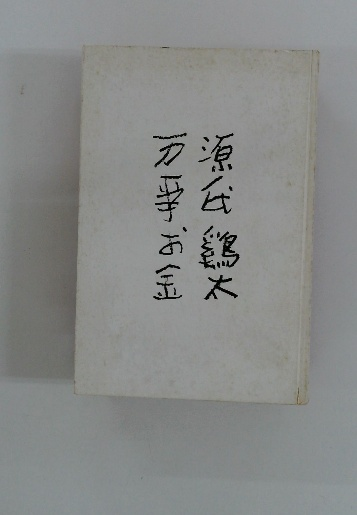 源氏鷄太
万事お金